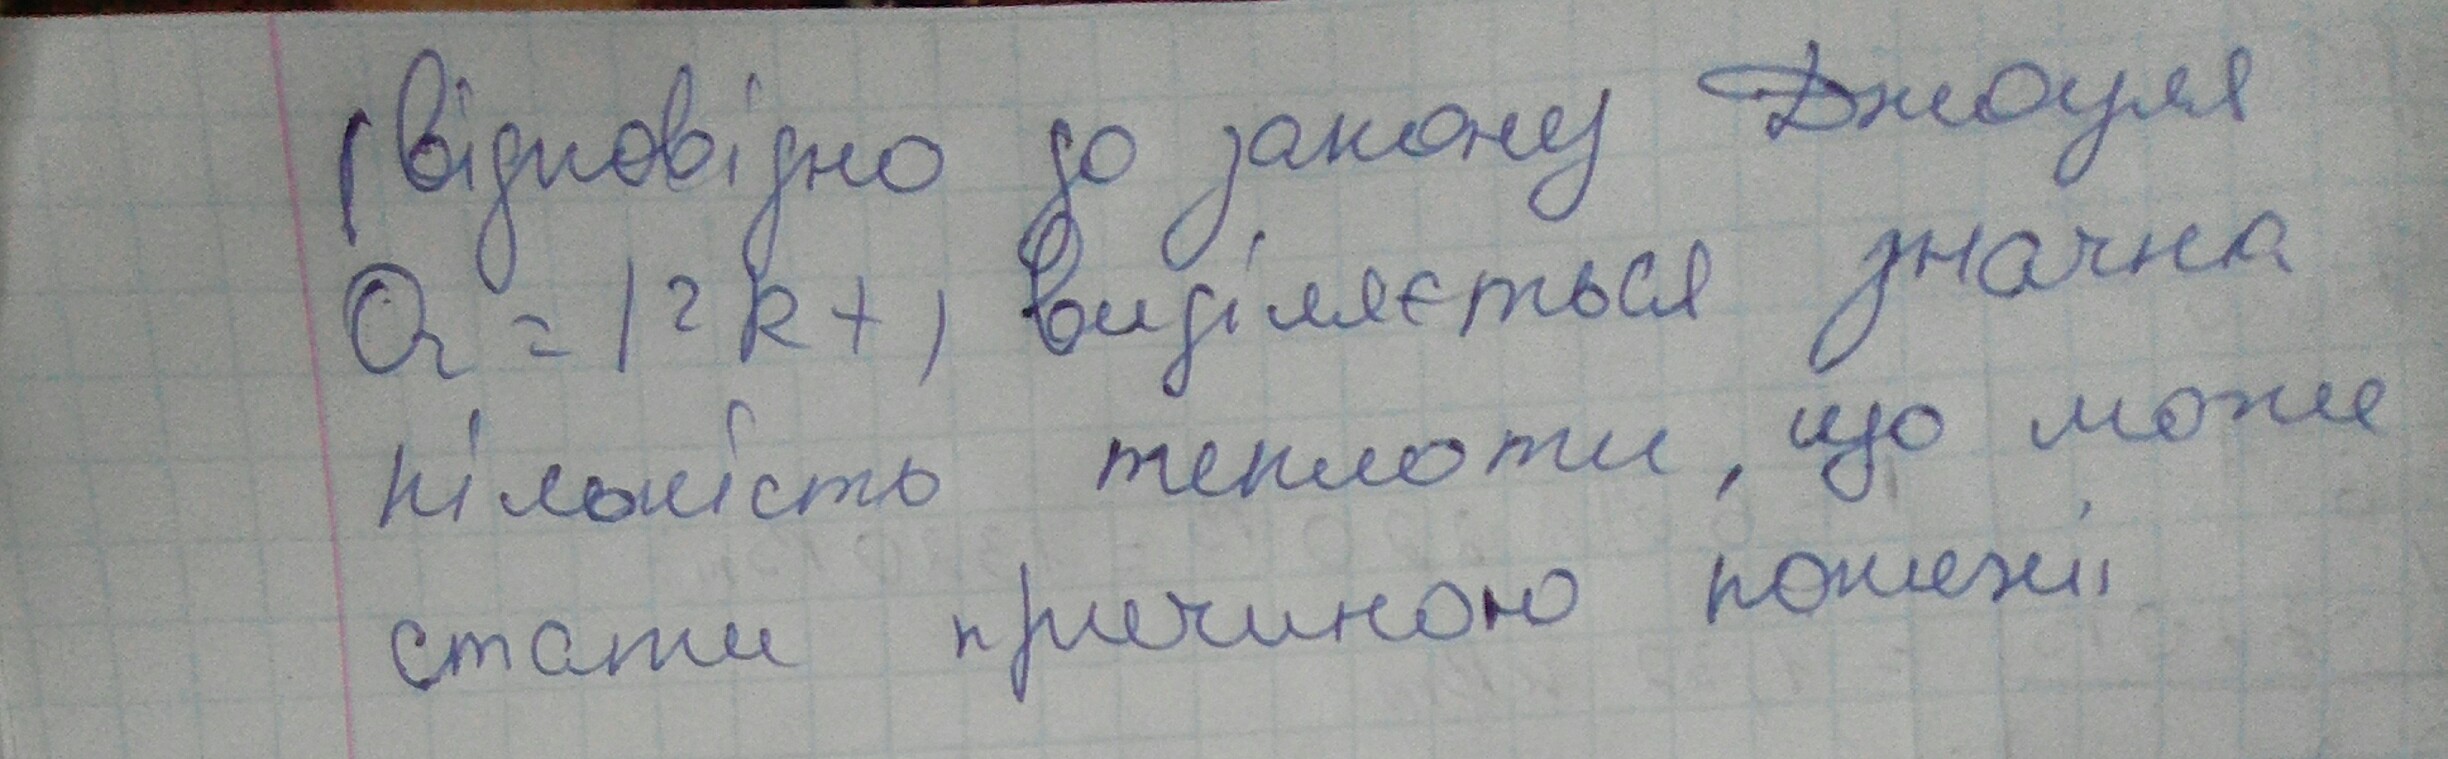 (відповідно до закону Джоуля
Q = I²Rt, виділяється значна
кількість теплоти, що може
стати причиною пожежі